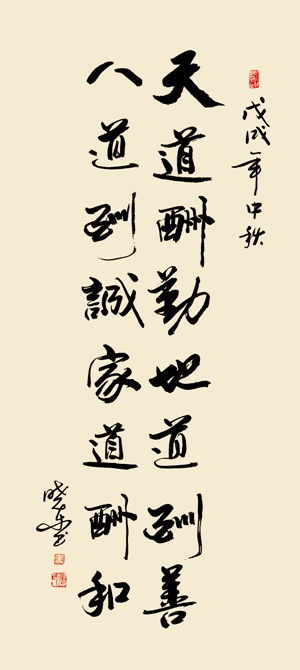 戊戌年中秋
天道酬勤地道酬善
人道酬誠家道酬和
晓东书